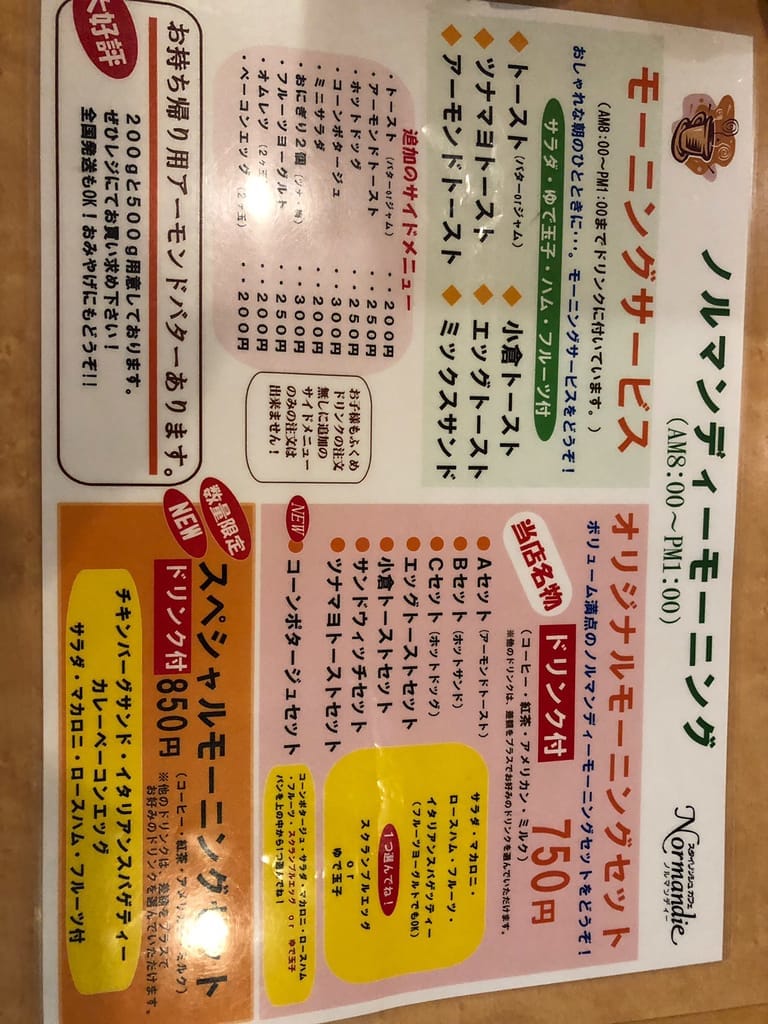 ノルマンディーモーニング
(AM8:00〜PM1:00)
スタイリッシュ カフェ
Normandie
ノルマンディー
モーニングサービス
(AM8:00〜PM1:00までドリンクに付いています。)
おしゃれな朝のひとときに…。モーニングサービスをどうぞ!
サラダ・ゆで玉子・ハム・フルーツ付
◆トースト(バターorジャム) ◆小倉トースト
◆ツナマヨトースト ◆エッグトースト
◆アーモンドトースト ◆ミックスサンド
追加のサイドメニュー
・トースト(バターorジャム)・・200円
・アーモンドトースト・・250円
・ホットドッグ・・250円
・コーンポタージュ・・300円
・ミニサラダ・・200円
・おにぎり2個(ツナ・梅)・・300円
・フルーツヨーグルト・・250円
・オムレツ(2ヶ玉)・・200円
・ベーコンエッグ(2ヶ玉)・・200円
お子様もふくめ
ドリンクの注文
無しに追加の
サイドメニュー
のみの注文は
出来ません!
大好評
お持ち帰り用アーモンドバターあります。
200gと500g用意しております。
ぜひレジにてお買い求め下さい!
全国発送もOK!おみやげにもどうぞ!!
オリジナルモーニングセット
ボリューム満点のノルマンディーモーニングセットをどうぞ!
当店名物
ドリンク付 750円
(コーヒー・紅茶・アメリカン・ミルク)
※他のドリンクは、差額をプラスでお好みのドリンクを選んでいただけます。
●Aセット(アーモンドトースト)
●Bセット(ホットサンド)
●Cセット(ホットドッグ)
●エッグトーストセット
●小倉トーストセット
●サンドウィッチセット
●ツナマヨトーストセット
サラダ・マカロニ・
ロースハム・フルーツ・
イタリアンスパゲッティー
(フルーツヨーグルトでもOK)
1つ選んでね!
スクランブルエッグ
or
ゆで玉子
NEW
●コーンポタージュセット
コーンポタージュ・サラダ・マカロニ・ロースハム
・フルーツ・スクランブルエッグ or ゆで玉子
パンを上の中から1つ選んでね!
数量限定
NEW
スペシャルモーニングセット
ドリンク付 850円
(コーヒー・紅茶・アメリカン・ミルク)
※他のドリンクは、差額をプラスで
お好みのドリンクを選んでいただけます。
チキンバーグサンド・イタリアンスパゲティー
カレーベーコンエッグ
サラダ・マカロニ・ロースハム・フルーツ付